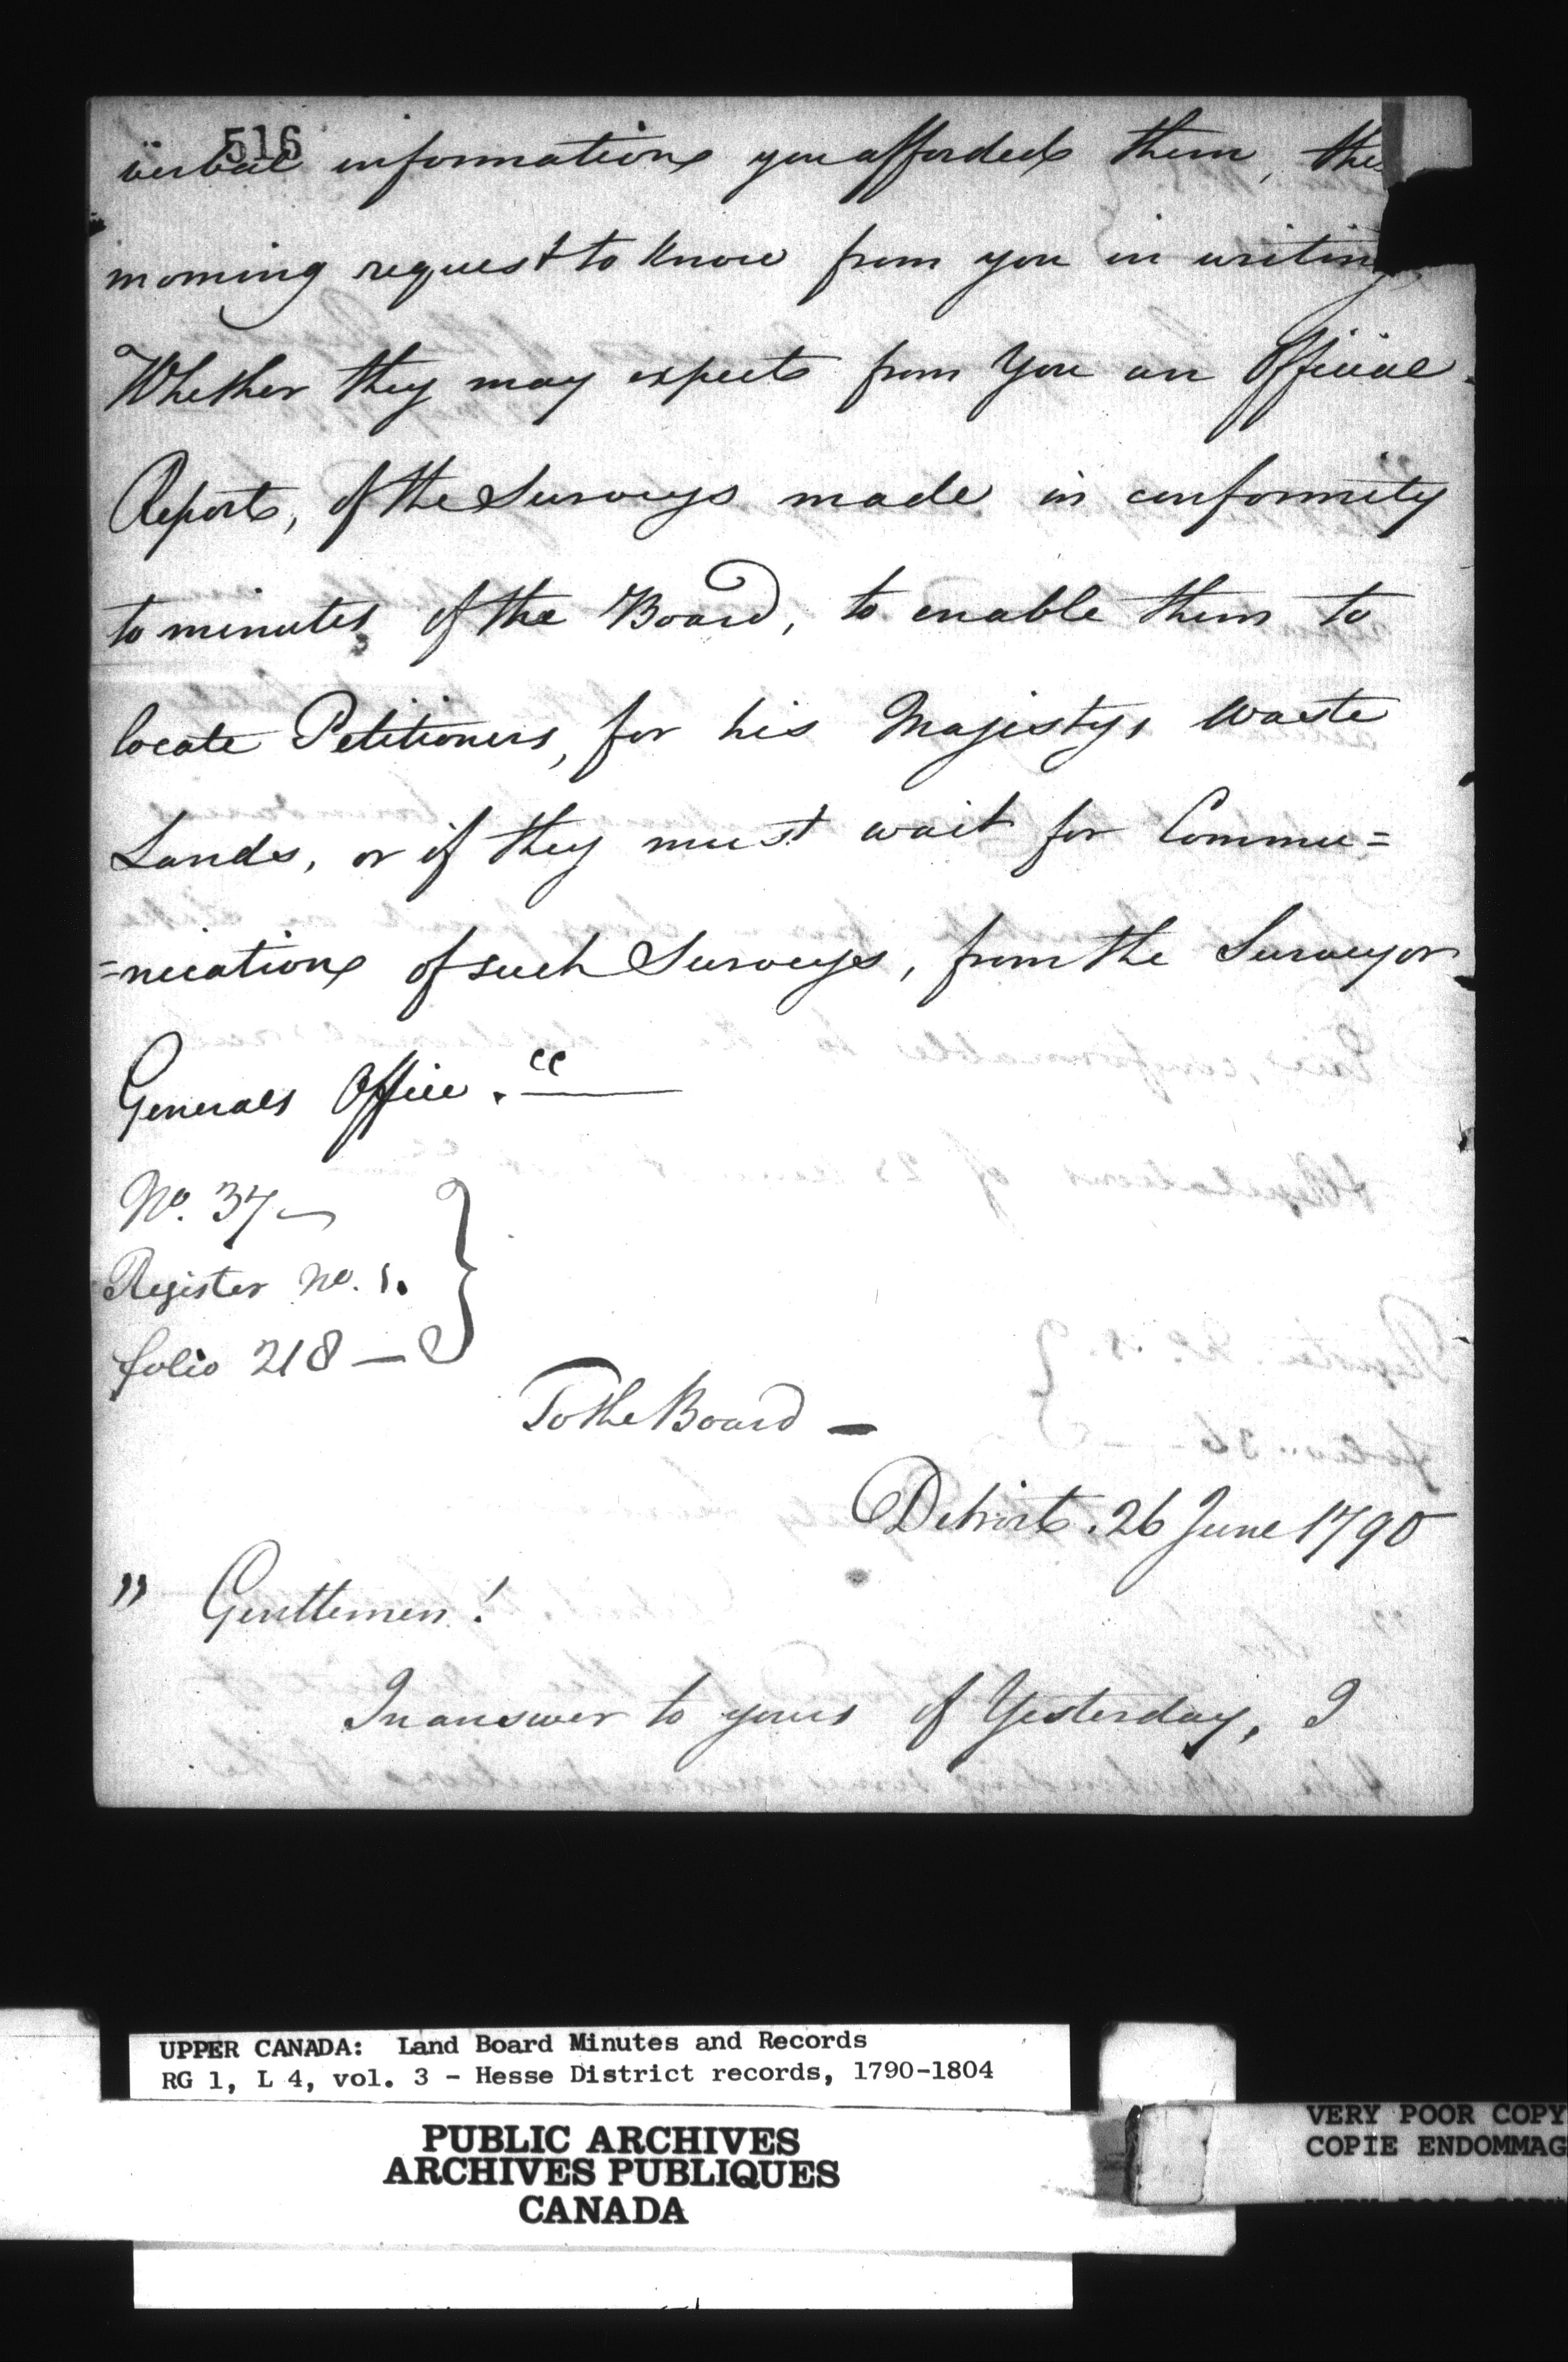 516
verbal information you afforded them, the
morning request to know from you in writing
Whether they may expect from You an Official
Report, of the Surveys made in conformity
to minutes of the Board, to enable them to
locate Petitioners, for his Majestys waste
Lands, or if they must wait for Commu=
=nication of such Surveys, from the Surveyor
Generals Office. "
No. 37
Register No. 1.
folio 218
To the Board —
Detroit. 26 June 1790
" Gentlemen!
In answer to yours of Yesterday, I
UPPER CANADA: Land Board Minutes and Records
RG 1, L 4, vol. 3 - Hesse District records, 1790-1804
PUBLIC ARCHIVES
ARCHIVES PUBLIQUES
CANADA
VERY POOR COPY
COPIE ENDOMMAG